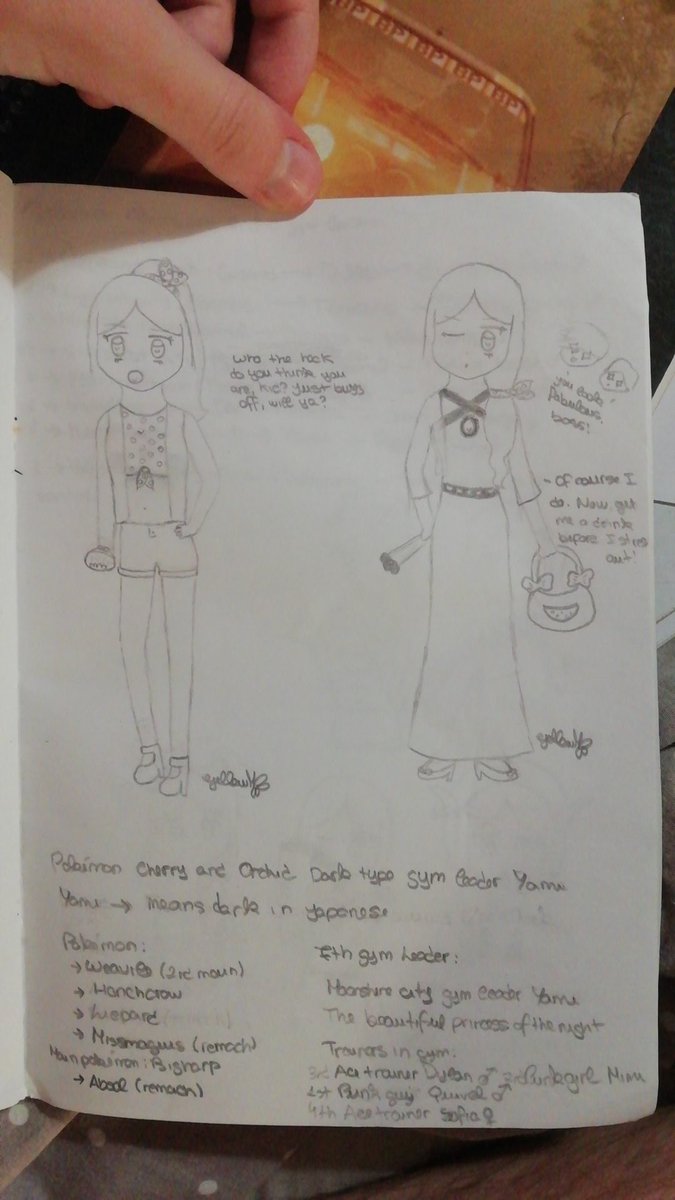 Who the heck
do you think you
are, kid? Just bugg
off, will ya?
you look
fabulous,
boss!
- Of course I
do. Now get
me a drink
before I stress
out!
yellow
yellow
Pokémon Cherry and Orchid Dark type gym leader Yami
Yami → means dark in japanese
Pokémon:
→ Weavile (2nd main)
→ Honchcrow
→ Liepard (rematch)
→ Missmagius (remach)
Main pokémon: Bisharp
→ Absol (remach)
7th gym leader:
Moonshine city gym leader Yami
The beautiful princess of the night
Trainers in gym:
3rd Ace trainer Dylan ♂ 2nd Punk girl
1st Punk guy ♂
4th Ace trainer Sofia ♀